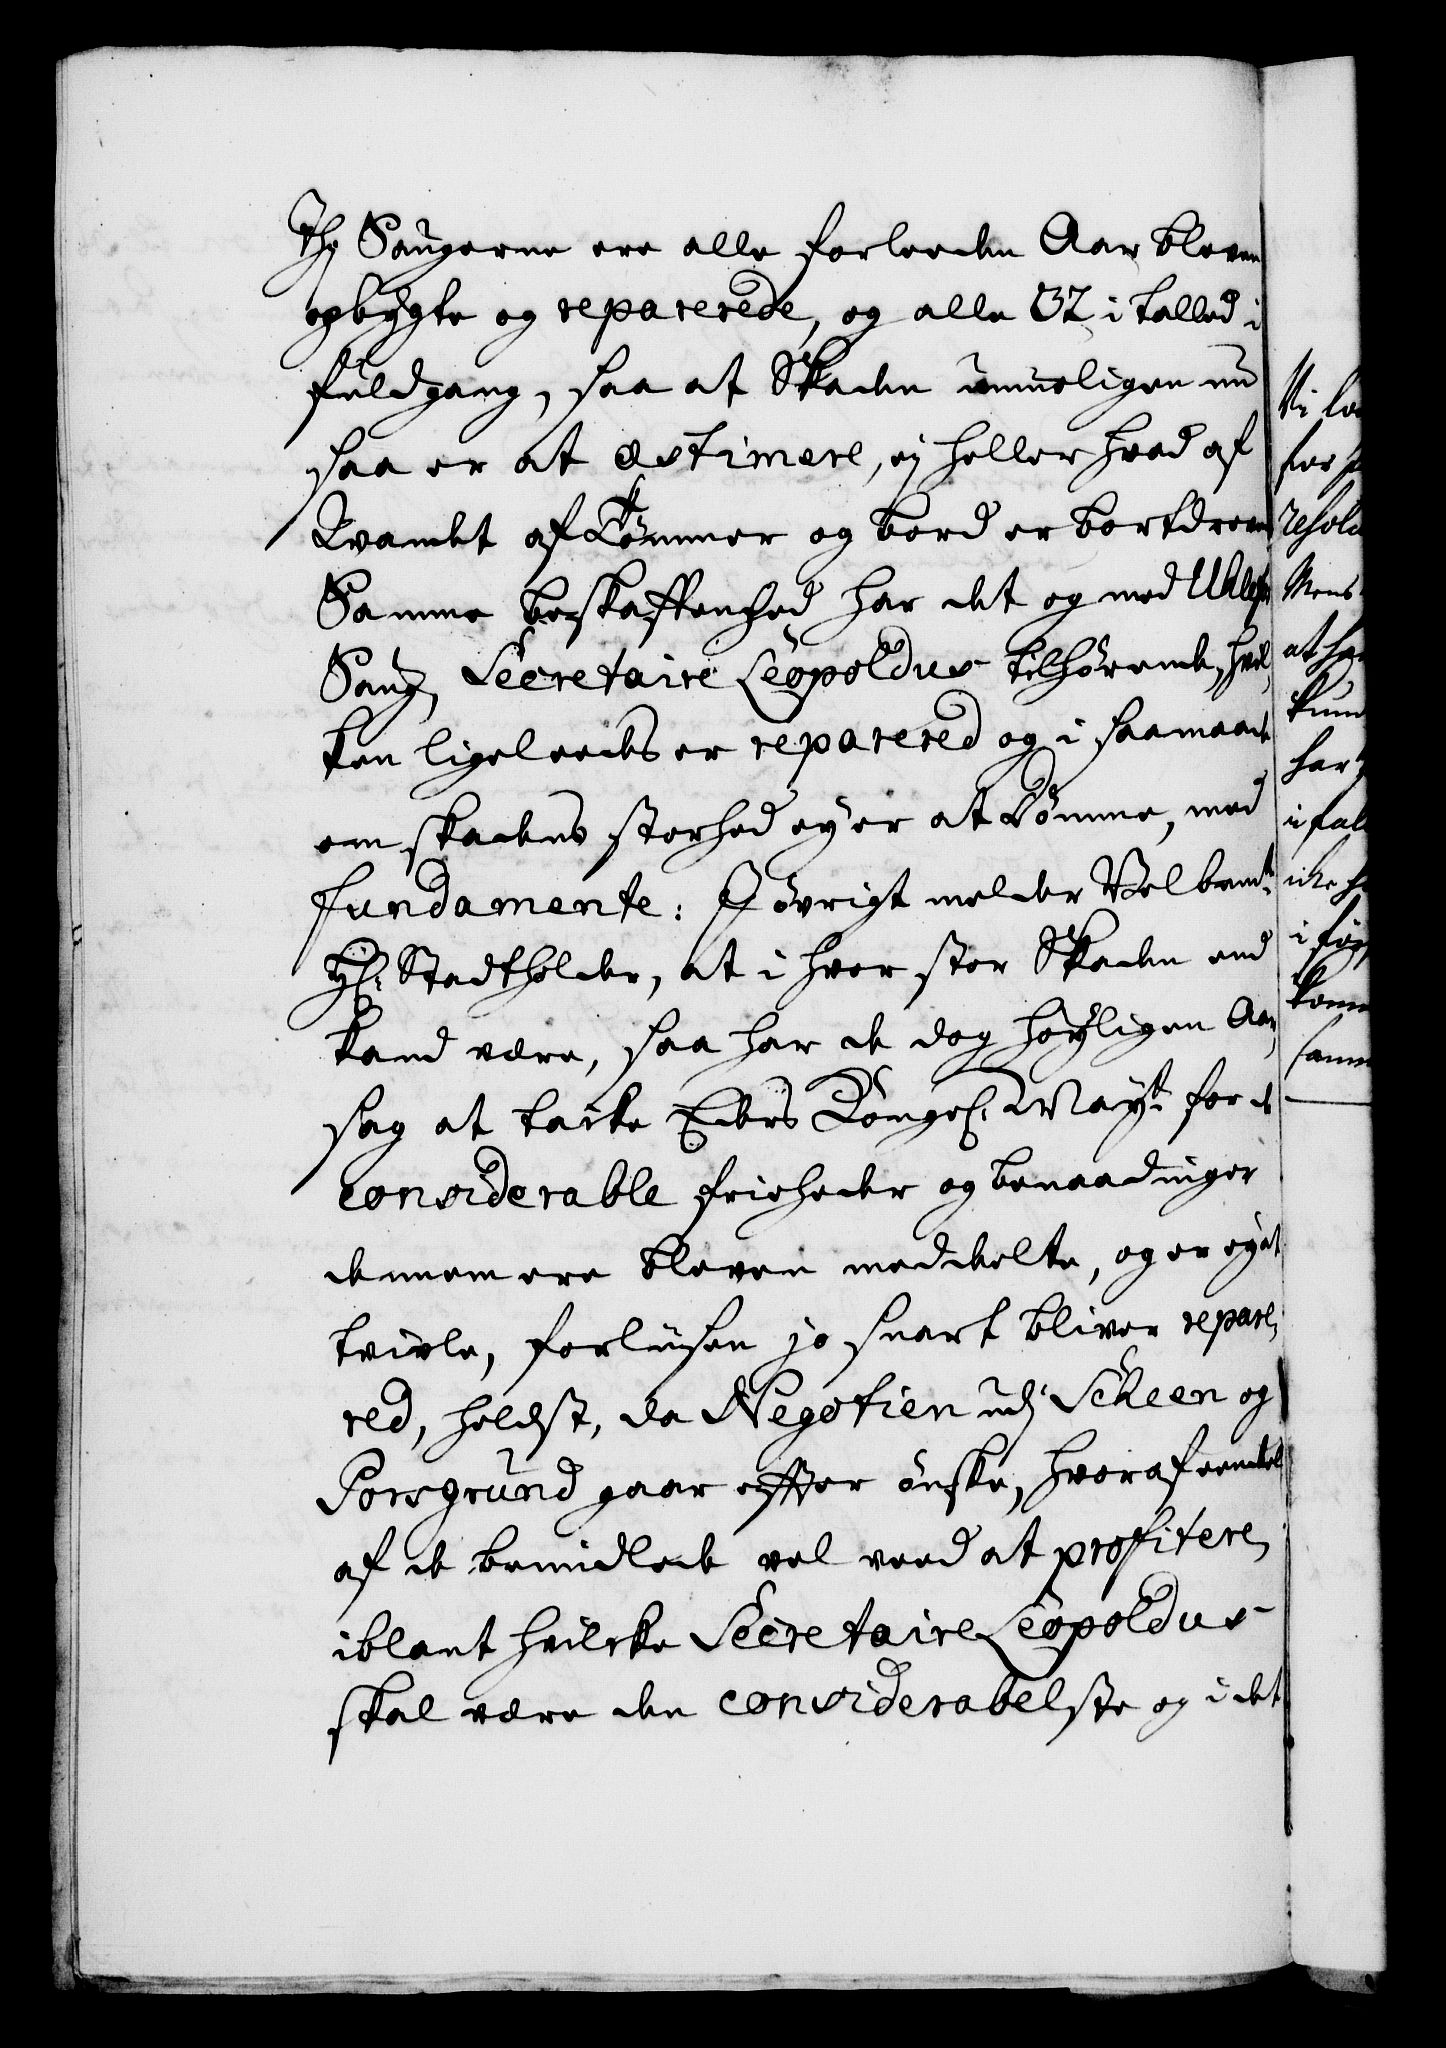 Thj Saugerne ere alle forleeden Aar bleven
opbygte og reparerede, og alle 32 i talled i
fuldgang, saa at Skaden umueligen nu
saa er at æstimere, ej heller hvad af
Qvantet af Tömmer og bord er bortdreven
Samme beskaffenhed har det og med Ulefos
Saug, Secretaire Leopoldus tilhörende, hvil,
ken ligeleedes er repareret og i saamaade
om skadens storhed ey er at dömme, med
fundamente: J övrigt melder Velbemte
Hr: Stadtholder, at i hvor stor Skaden end
kand være, saa har de dog höyligen Aar,
sag at tacke Eders Kongel: Mayt: for de
considerable friheder og benaadinger
dennem ere bleven meddelte, og er ey at
tvivle, forliisen jo snart bliver repare,
red, heldst, da Negotien udj Scheen og
Porsgrund gaar effter önske, hvoraf eendeel
af de bemidlede vel veed at profitere,
iblant hvilcke Secretaire Leopoldus
skal være den considerabelste og i det
Vi
for
resol
Mens
at
kun
har
i fal
icke
i
kom
samm